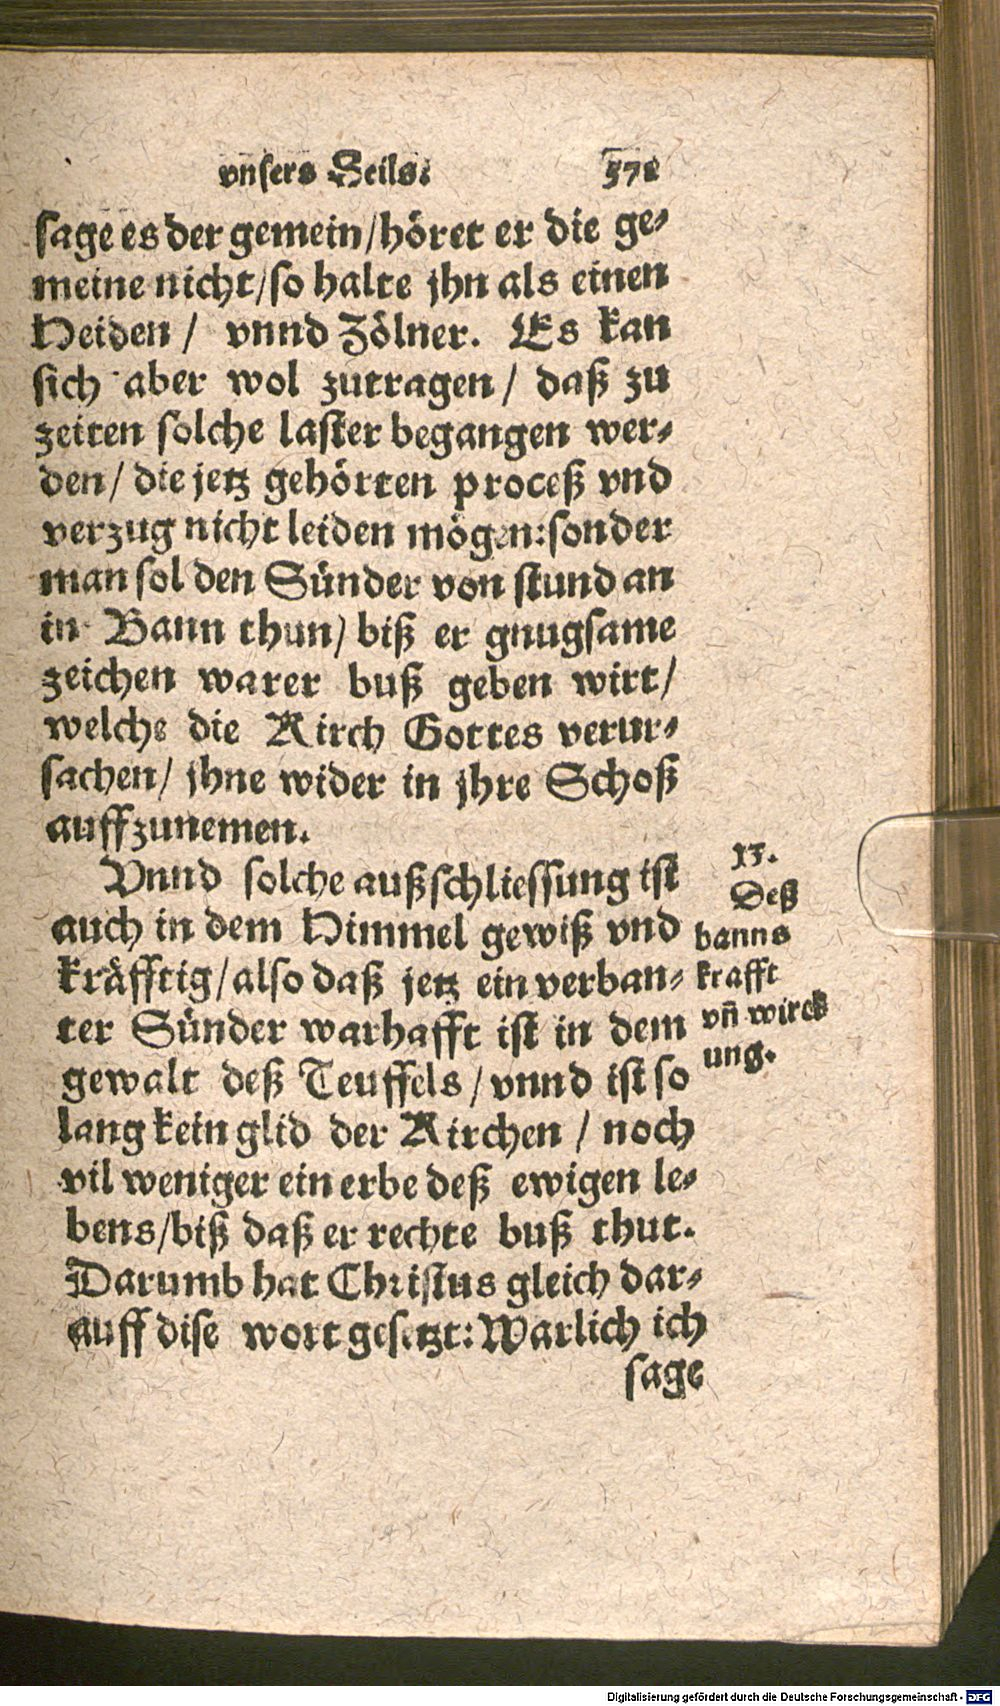 vnsers Heils. 571
sage es der gemein/höret er die ge-
meine nicht/so halte jhn als einen
Heiden / vnnd Zölner. Es kan
sich aber wol zutragen / daß zu
zeiten solche laster begangen wer-
den/ die jetz gehörten proceß vnd
verzug nicht leiden mögen: sonder
man sol den Sünder von stund an
in Bann thun/ biß er gnugsame
zeichen warer buß geben wirt/
welche die Kirch Gottes verur-
sachen/ jhne wider in jhre Schoß
auffzunemen.
Vnnd solche außschliessung ist
auch in dem Himmel gewiß vnd
kräfftig/also daß jetz ein verban-
ter Sünder warhafft ist in dem
gewalt deß Teuffels / vnnd ist so
lang kein glid der Kirchen / noch
vil weniger ein erbe deß ewigen le-
bens/biß daß er rechte buß thut.
Darumb hat Christus gleich dar-
auff dise wort gesetzt: Warlich ich
sage
15.
Deß
banns
krafft
vñ wirck
ung.
Digitalisierung gefördert durch die Deutsche Forschungsgemeinschaft - DFG